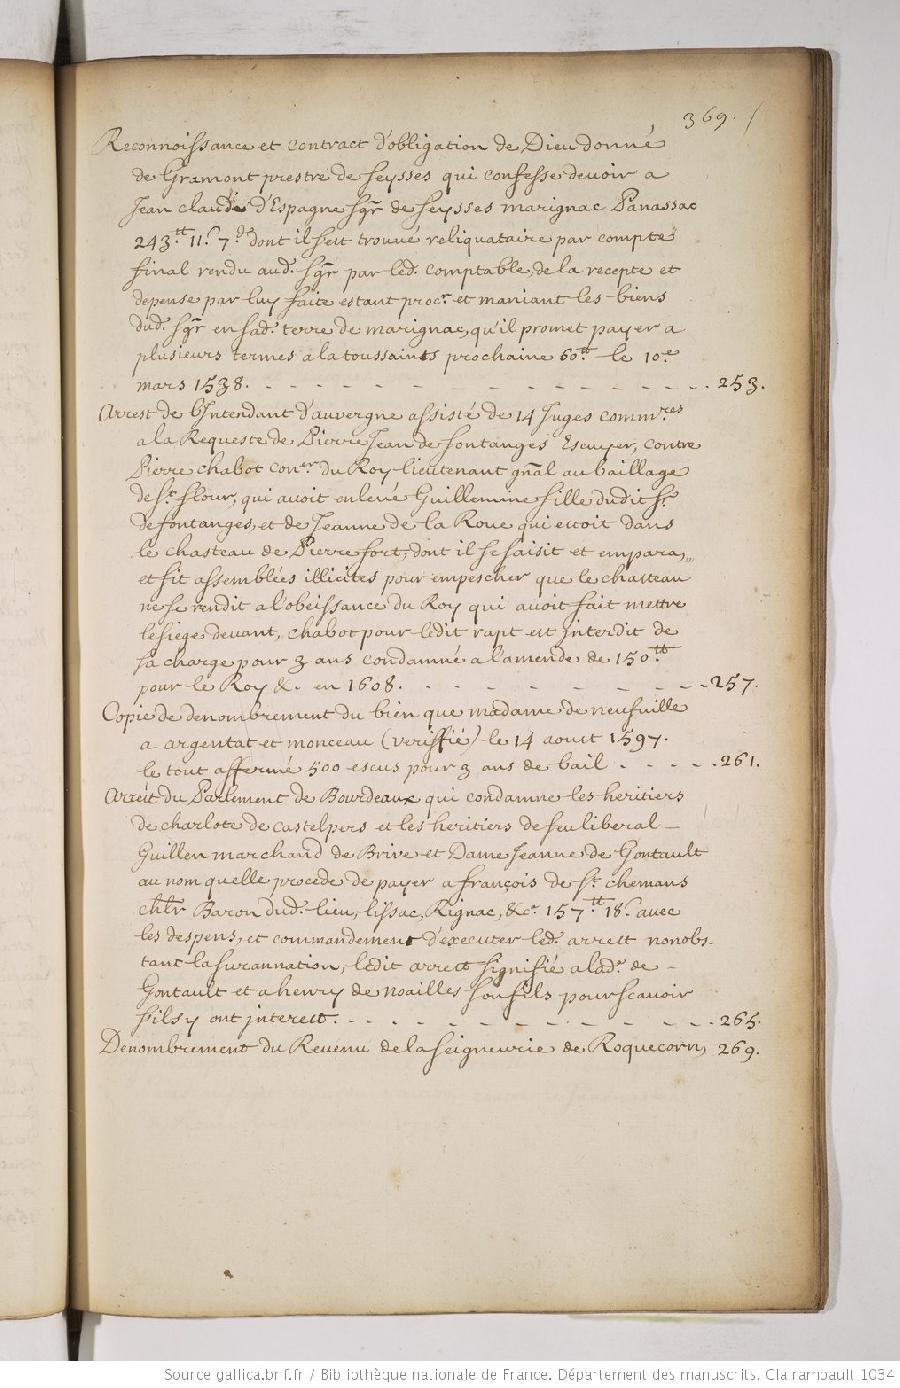 369.
Reconnoissance et contract d'obligation de Dieudonné
de Gramont prestre de Seysses qui confesse devoir a
Jean claude d'Espagne Sgr de Seysses marignac Panassac
243.tt 11.s 7.d dont il s'est trouvé reliquataire par compte
final rendu aud. Sgr par led. comptable, de la recepte et
depense par luy faite estant procr. et maniant les biens
dud. Sgr en sad. terre de marignac, qu'il promet payer a
plusieurs termes a la toussaints prochaine 60.tt le 10.e
mars 1538. - - - - - - - - - - - - 253.
Arrest de l'Intendant d'auvergne assisté de 14 Juges commres
a la Requeste de Pierre Jean de fontanges Escuyer, contre
Pierre chabot coner. du Roy lieutenant gñal au baillage
de St. flour, qui avoit enlevé Guillemine fille dudit Sr.
de fontanges, et de Jeanne de la Roue qui etoit dans
le chasteau de Pierrefort, dont il se saisit et empara,
et fit assemblées illicites pour empescher que le chasteau
ne se rendit a l'obeissance du Roy qui avoit fait mettre
le siege devant, chabot pour ledit rapt est Interdit de
sa charge pour 3 ans condamné a l'amende de 150tt
pour le Roy &. en 1608. - - - - - - - - 257.
Copie de denombrement du bien que madame de neufville
a argentat et monceau (veriffié) le 14 aoust 1597.
le tout affermé 500 escus pour 3 ans de bail - - - - 261.
Arrest du Parlement de Bourdeaux qui condamne les heritiers
de charlote de castelpers et les heritiers de feu liberal -
Guillen marchand de Brive et Dame Jeanne de Gontault
au nom quelle procede de payer a françois de St. chemans
chlr Baron dud. lieu, lissac, Rignac, &c. 157.tt 18.s avec
les despens, et commandement d'executer led. arrest nonobs-
tant la surannation, ledit arrest signifié a lad. de -
Gontault et a henry de noailles son fils pour scavoir
s'ils y ont jnterest. - - - - - - - - - - 265.
Denombrement du Revenu de la seigneurie de Roquecorn, 269.
Source gallica.bnf.fr / Bibliothèque nationale de France. Département des manuscrits. Clairambault 1034